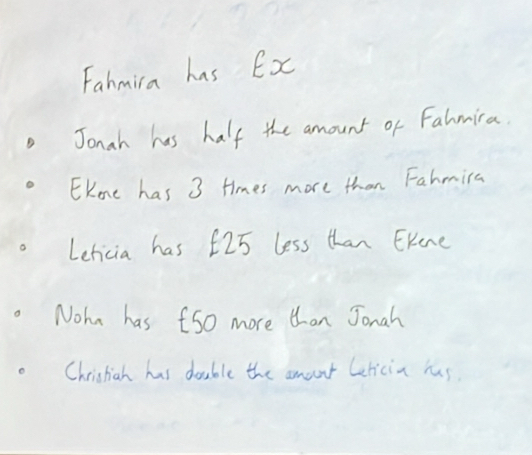 Fahmira has £x
• Jonah has half the amount of Fahmira.
• Ekene has 3 times more than Fahmira
• Leticia has £25 less than Ekene
• Noha has £50 more than Jonah
• Christiah has double the amount Leticia has.